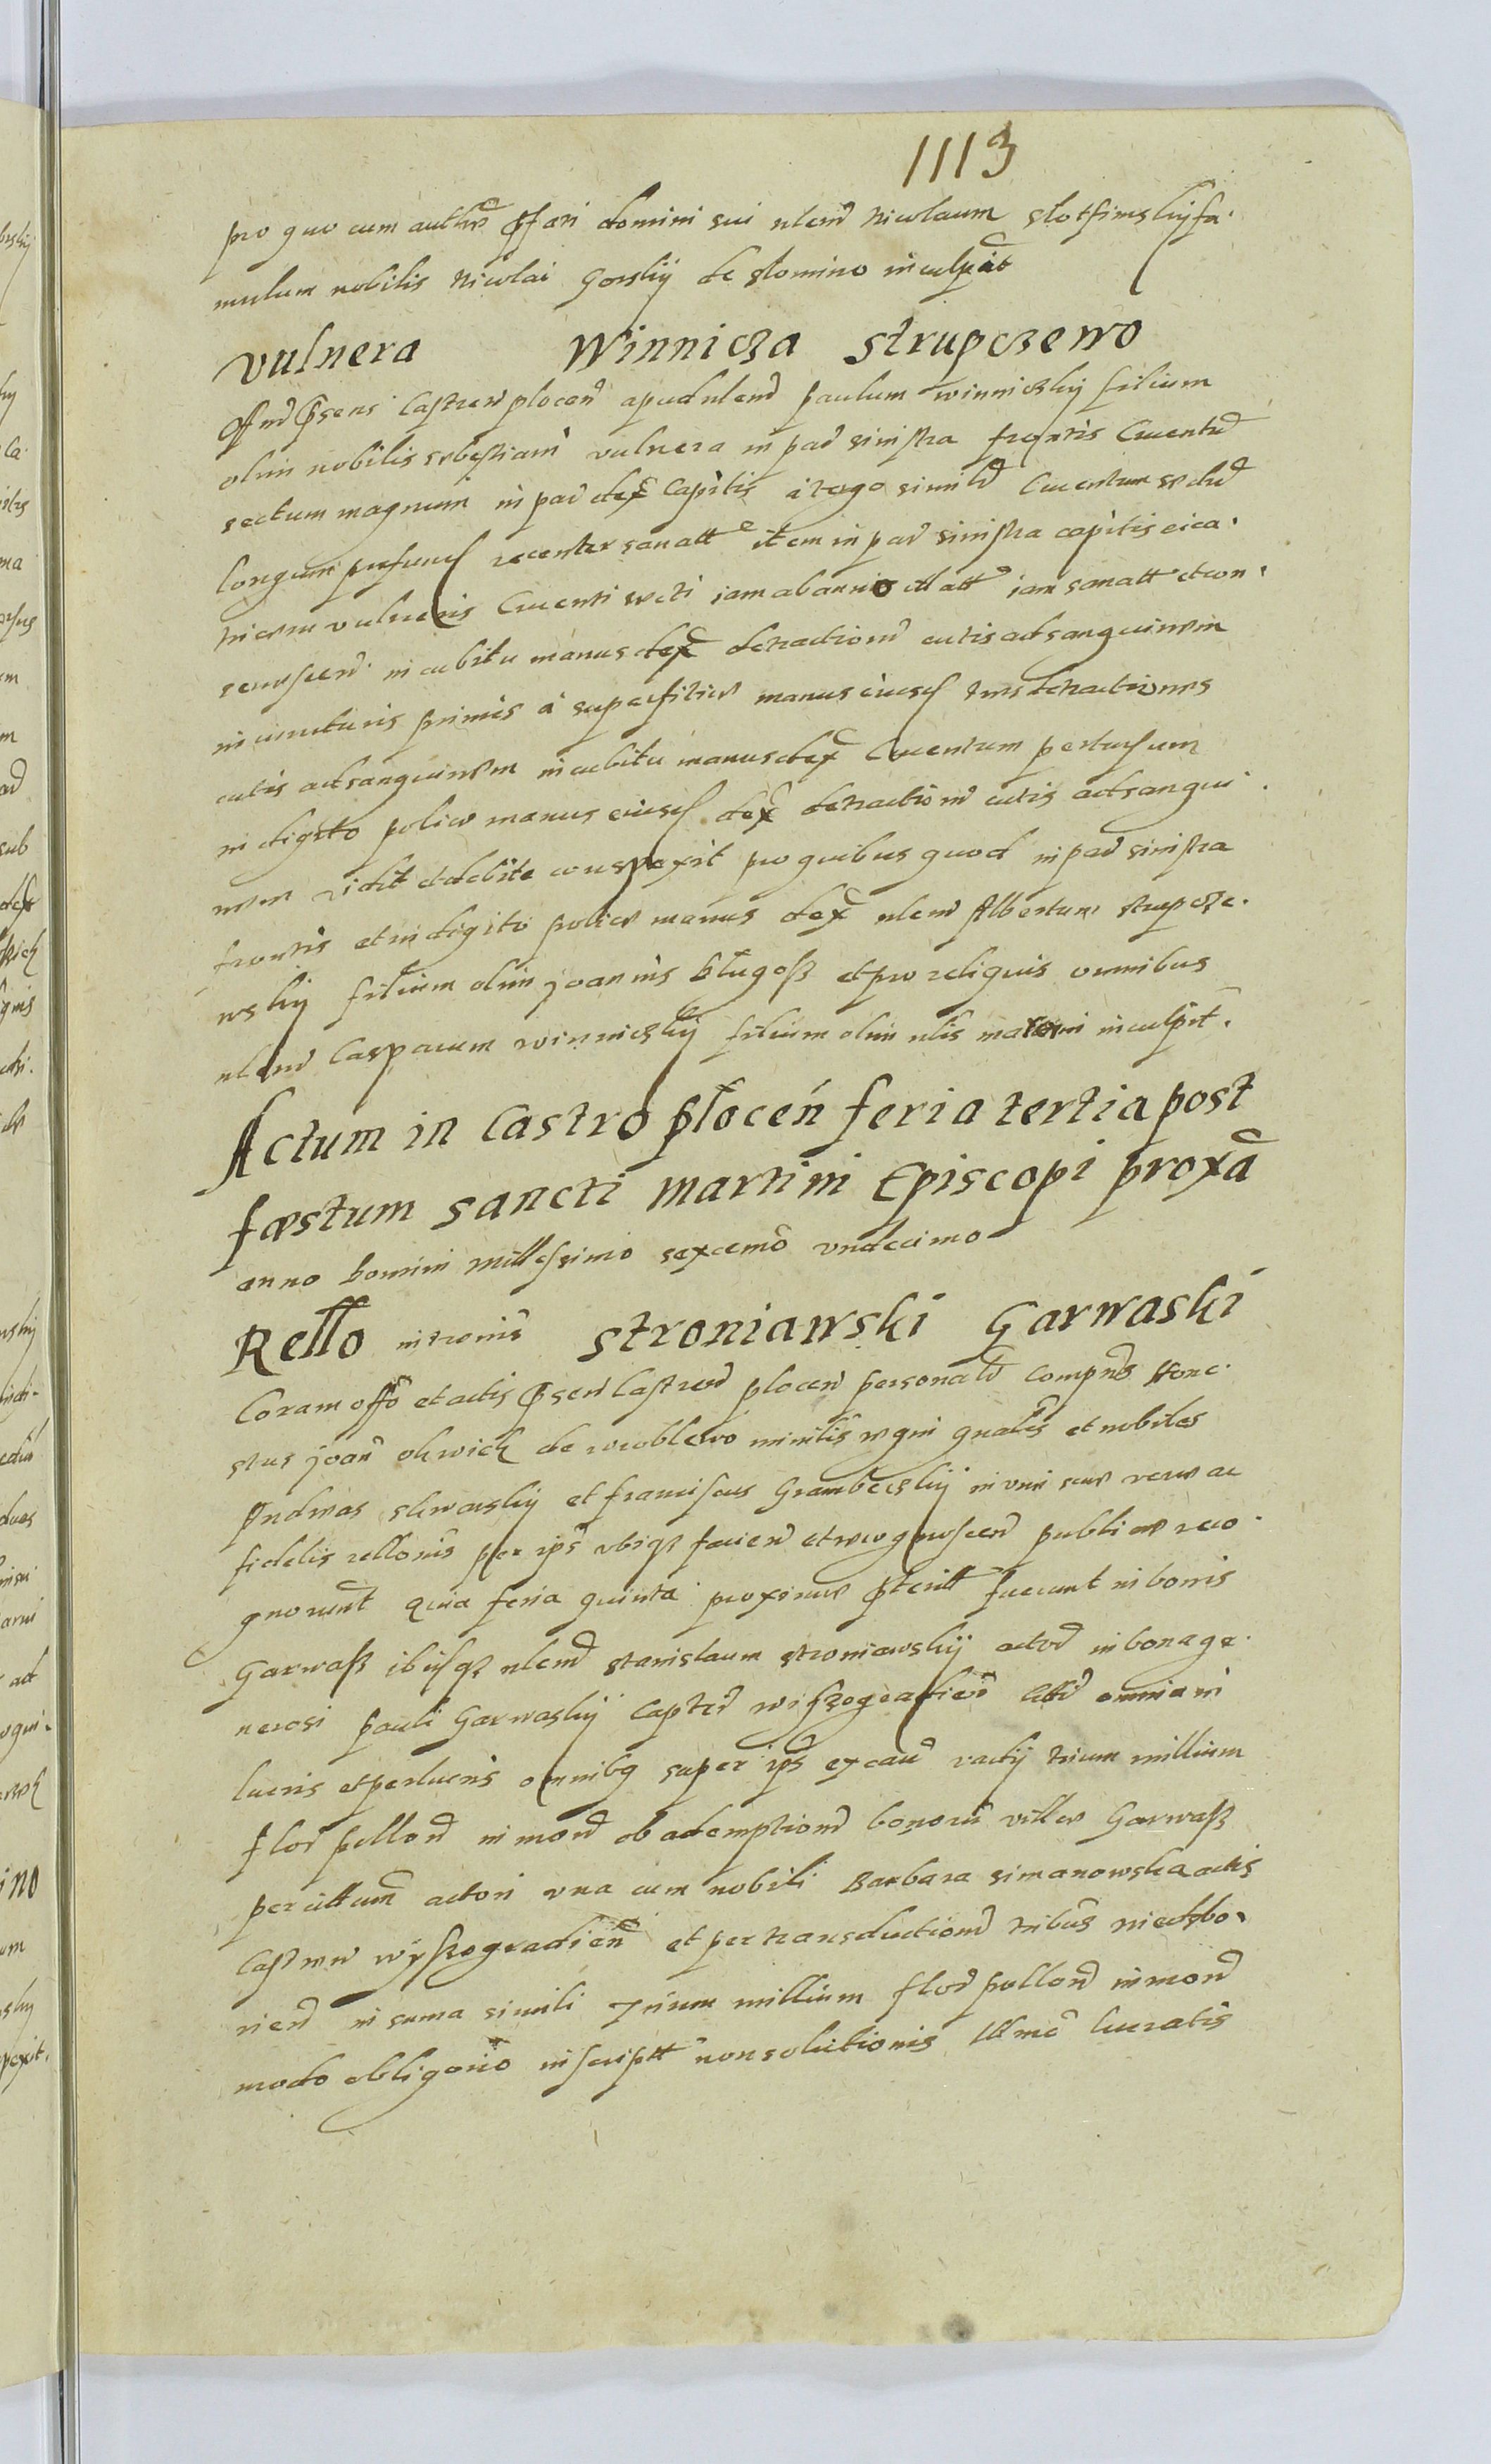 1113
pro quo cum authre pfati domini sui nlem Nicolaum Slotfinskij fa.
mulum nobilis Nicolai Gorskij de Slomino inculpat
Vulnera Winnicza Strupczewo
Offm psens Castren plocen apud nlem Paulum Winniczkij filium
olim nobilis Sebestiani vulnera in par sinistra frontis Cruentu
sectum magnum in par dex Capitis a tergo simile Cruentum sectu
longum recenter sanatt item in par sinistra capitis cica.
tricem vulneris Cruenti secti iam ab anno illatt iam sanatt et con.
in cubitu manus dex detractione cutis ad sanguinem
in iuncturis primis a superficie manus eiusd tres detractiones
cutis ad sanguinem in cubitu manus dex Cruentum pertusum
in digito police manus eiusd dex detractione cutis ad sangui.
nem vidit et debite conspexit pro quibus quod in par sinistra
frontis et in digito police manus dex nlem Albertum Strupcze.
wskij filium olim Joannis Długosz et pro reliquis omnibus
nlem Casparum Winniczkij filium olim nlis inculpit.
Actum in Castro płocen feria tertia post
fæstum sancti Martini Episcopi proxa
anno Domini Millesimo sexcemo undecimo
Rello intronis Stroniawski Garwaski
Coram offo et actis psen Castren plocen personal compns Hone.
stus Joan de Wroblewo minilis regni gnalis et nobiles
Andreas et Franciscus Grambeczkij in vim sue vere ac
fidelis rellonis per ips ubiqz facien et recognoscen publice reco.
gnorunt quia feria quinta proxime pteritt fuerunt in bonis
Garwasz ibiqz nlem Stanislaum Stroniawskij actore in bona ge.
nerosi Pauli Garwaskij Capten Wiszogradien omnia in
lucris et perlucris omnibq super ips ex cau vadij trium millium
flor pollon in mon ob ademptione bonoru ville Garwasz
per illum actori una cum nobili Barbara Simanowska actis
Castren Wyszogradien et per transductione tribus niedzbo.
rien in suma simili Trium millium flor pollon in mon
modo obligorio inscriptt non solutionis lttme lucratis